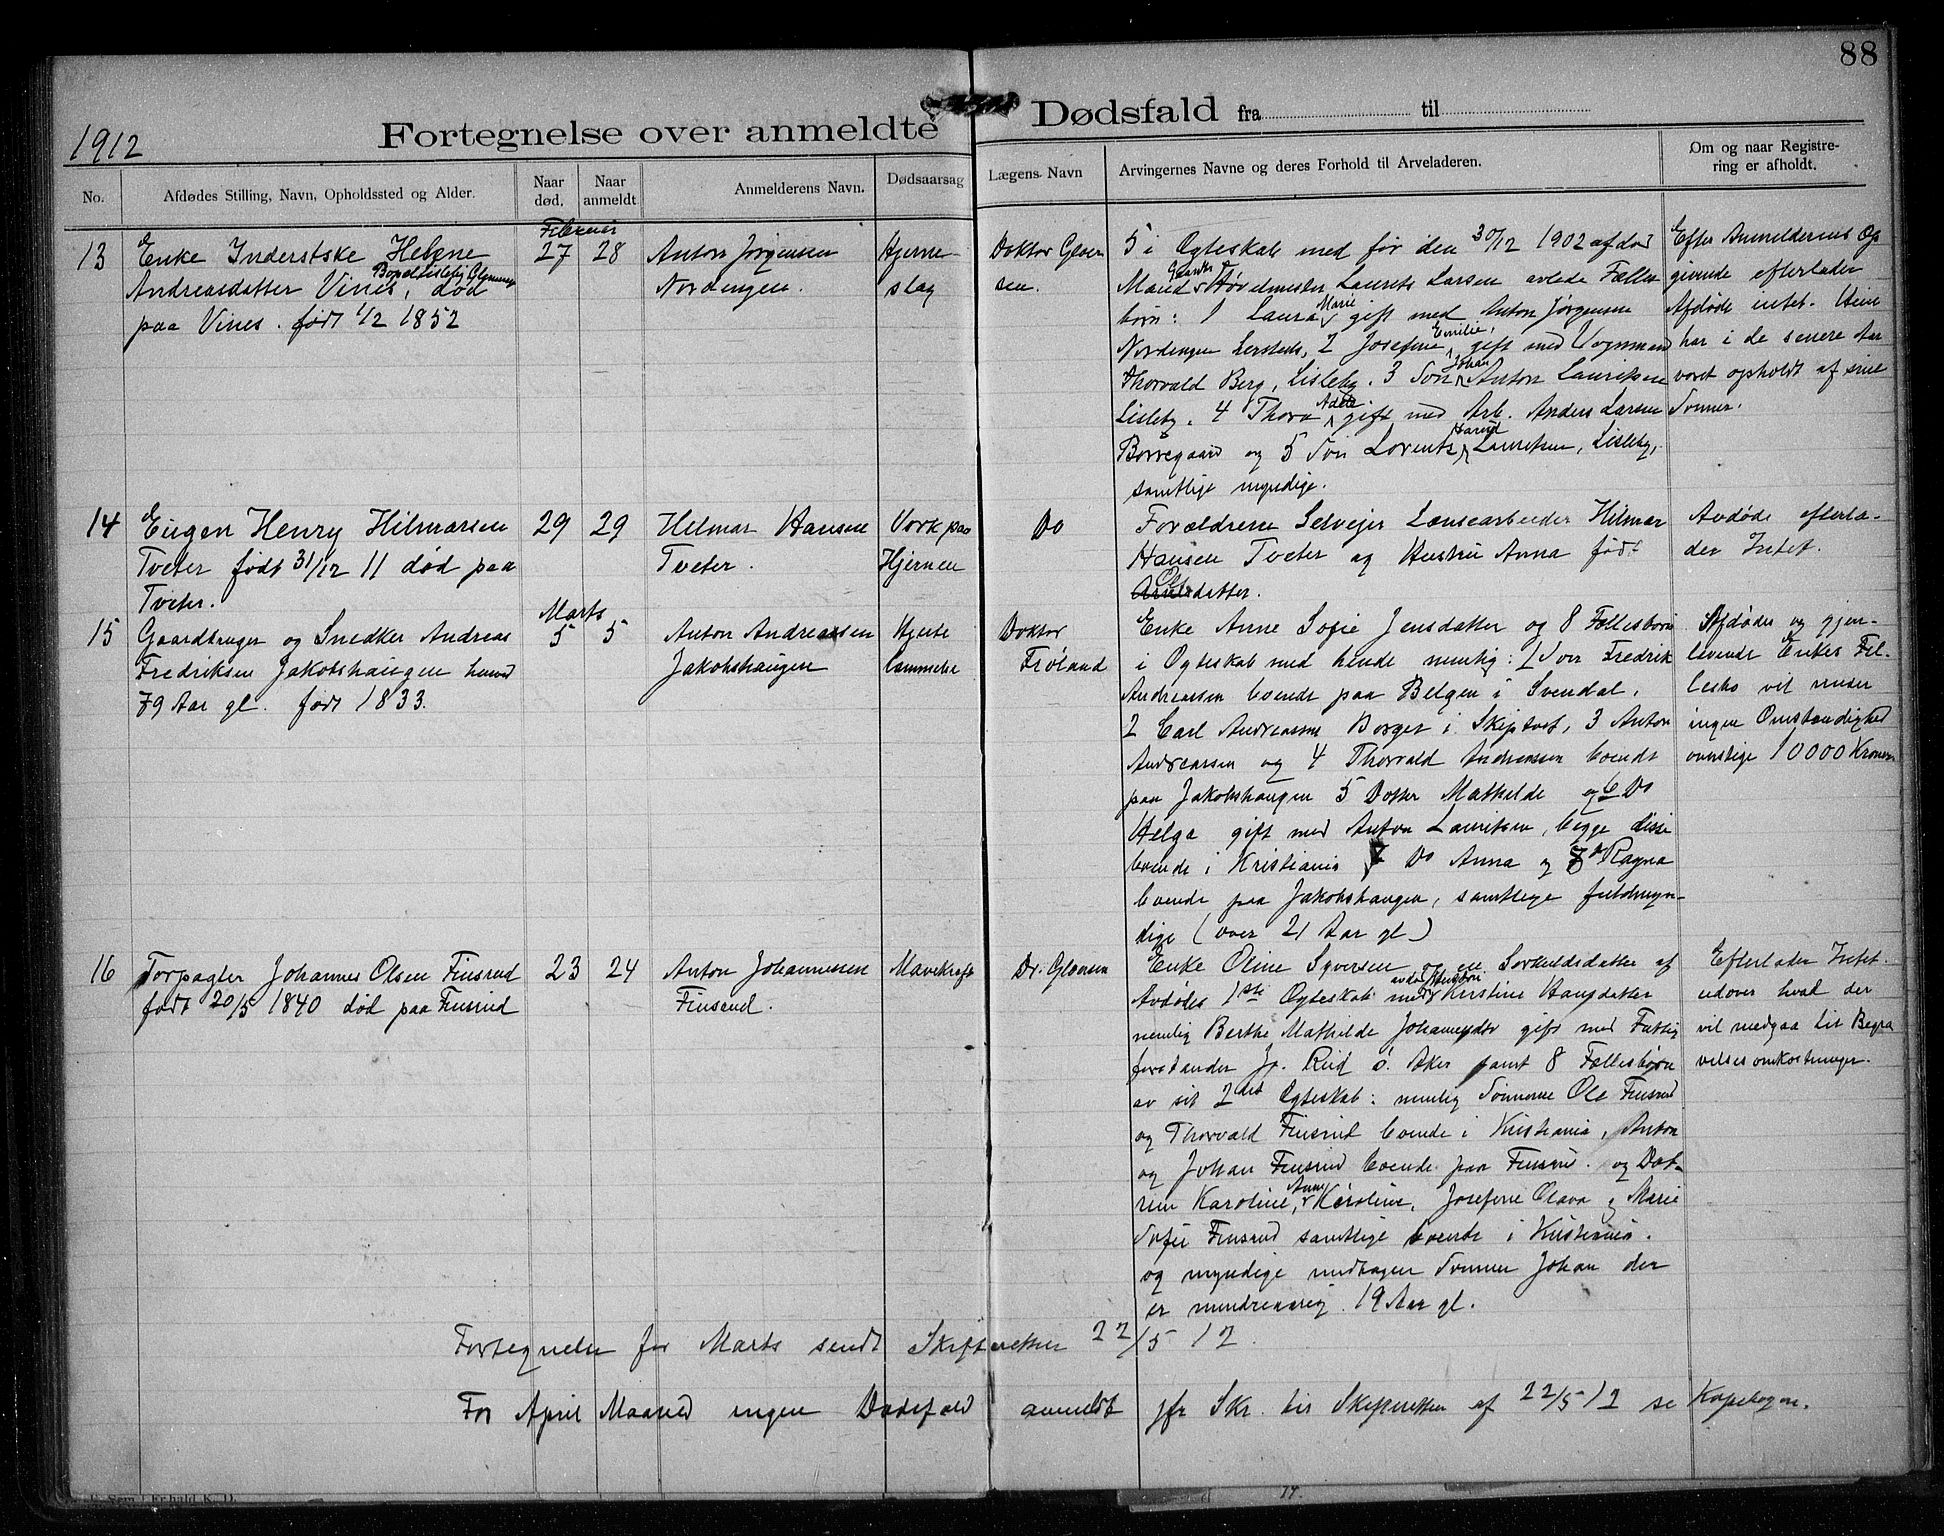 88
1912
Fortegnelse over anmeldte Dødsfald fra til
No.
Afdødes Stilling, Navn, Opholdssted og Alder.
Naar død.
Naar anmeldt
Anmelderens Navn.
Dødsaarsag
Lægens Navn
Arvingernes Navne og deres Forhold til Arveladeren.
Om og naar Registre-
ring er afholdt.
Februar
13
Enke Inderstske Helene
Andreasdatter Vines, Bopel Lisleby Glemminge død
paa Vines. født 1/2 1852
27
28
Anton Jørgensen
Nordengen.
Hjerne-
slag
Doktor Gløer
sen.
5 i Ogteskab med før den 30/12 1902 afdød
Mand Støvelmester Laurits Larsen avlede Felles
børn: 1 Laura Marie gift med Anton Jørgensen
Nordengen, 2 Josefine Emilie, gift med Vognmand
Thorvald Berg, Lisleby. 3 Søn Johan Anton Lauritsen
Lisleby. 4 Thora Adele gift med Arb. Anders Larsen
Borregaard og 5 Søn Lorents Harald Lauritsen, Lisleby,
samtlige myndige.
Efter Anmelderens Op
givende efterlader
Afdøde intet. Hun
har i de senere Aar
været opholdt af sine
Sønner.
14
Eugen Henry Hilmarsen
Tveter født 31/12 11 død paa
Tveter.
29
29
Hilmar Hansen
Tveter.
Vork paa
Hjernen
Do
Forældrene Selveier Lensearbeider Hilmar
Hansen Tveter og Hustru Anna født
Olsdatter.
Avdøde efterla-
der Intet.
Marts
15
Gaardbruger og Snedker Andreas
Fredriksen Jakobshaugen
79 Aar gl. født 1833.
5
5
Anton Andreassen
Jakobshaugen
Hjerte
lammelse
Doktor
Frøland
Enke Anne Sofie Jensdatter og 8 Fællesbørn
i Ogteskab med hende nemlig: 1 Søn Fredrik
Andreassen boende paa Belgen i Svendal,
2 Carl Andreassen Borger i Skiptvet, 3 Anton
Andreassen og 4 Thorvald Andreassen boende
paa Jakobshaugen 5 Datter Mathilde og 6 Do
Helga gift med Anton Lauritsen, begge disse
boende i Kristiania 7 Do Anna og 8 Do Ragna
boende paa Jakobshaugen, samtlige fuldmyn-
dige (over 21 Aar gl)
Afdødes og gjen-
levende Enkes Fel-
lesbo vil under
ingen Omstændighed
overstige 10000 Kroner
16
Torpagter Johannes Olsen Finsrud
født 20/5 1840 død paa Finsrud
23
24
Anton Johannessen
Finsrud.
Mavekræft
Dr. Gløersen
Enke Oline Syversen og en Særkuldsdatter af
Avdødes 1ste Ogteskab med avdøde Hustru Kristine Hansdatter
nemlig Berthe Mathilde Johannesdtr gift med Fattig
forstander Jo. Rud ø. Aker samt 8 Fællesbørn
av sit 2det Ogteskab: nemlig Sønnerne Ole Finsrud
og Thorvald Finsrud boende i Kristiania, Anton
og Johan Finsrud boende paa Finsrud. og Døt-
rene Karoline, Anna Karoline, Josefine Olava og Marie
Sofie Finsrud samtlige boende i Kristiania.
og myndige undtagen Sønnen Johan der
er mindreaarig. 19 Aar gl.
Efterlader Intet
udover hvad der
vil medgaa til Begra
velsesomkostninger.
Fortegnelse for Marts sendt Skifteretten 22/5 12.
For April Maaned ingen Dødsfald anmeldt jfr Skr. til Skifteretten af 22/5 12 se Kopibogen.